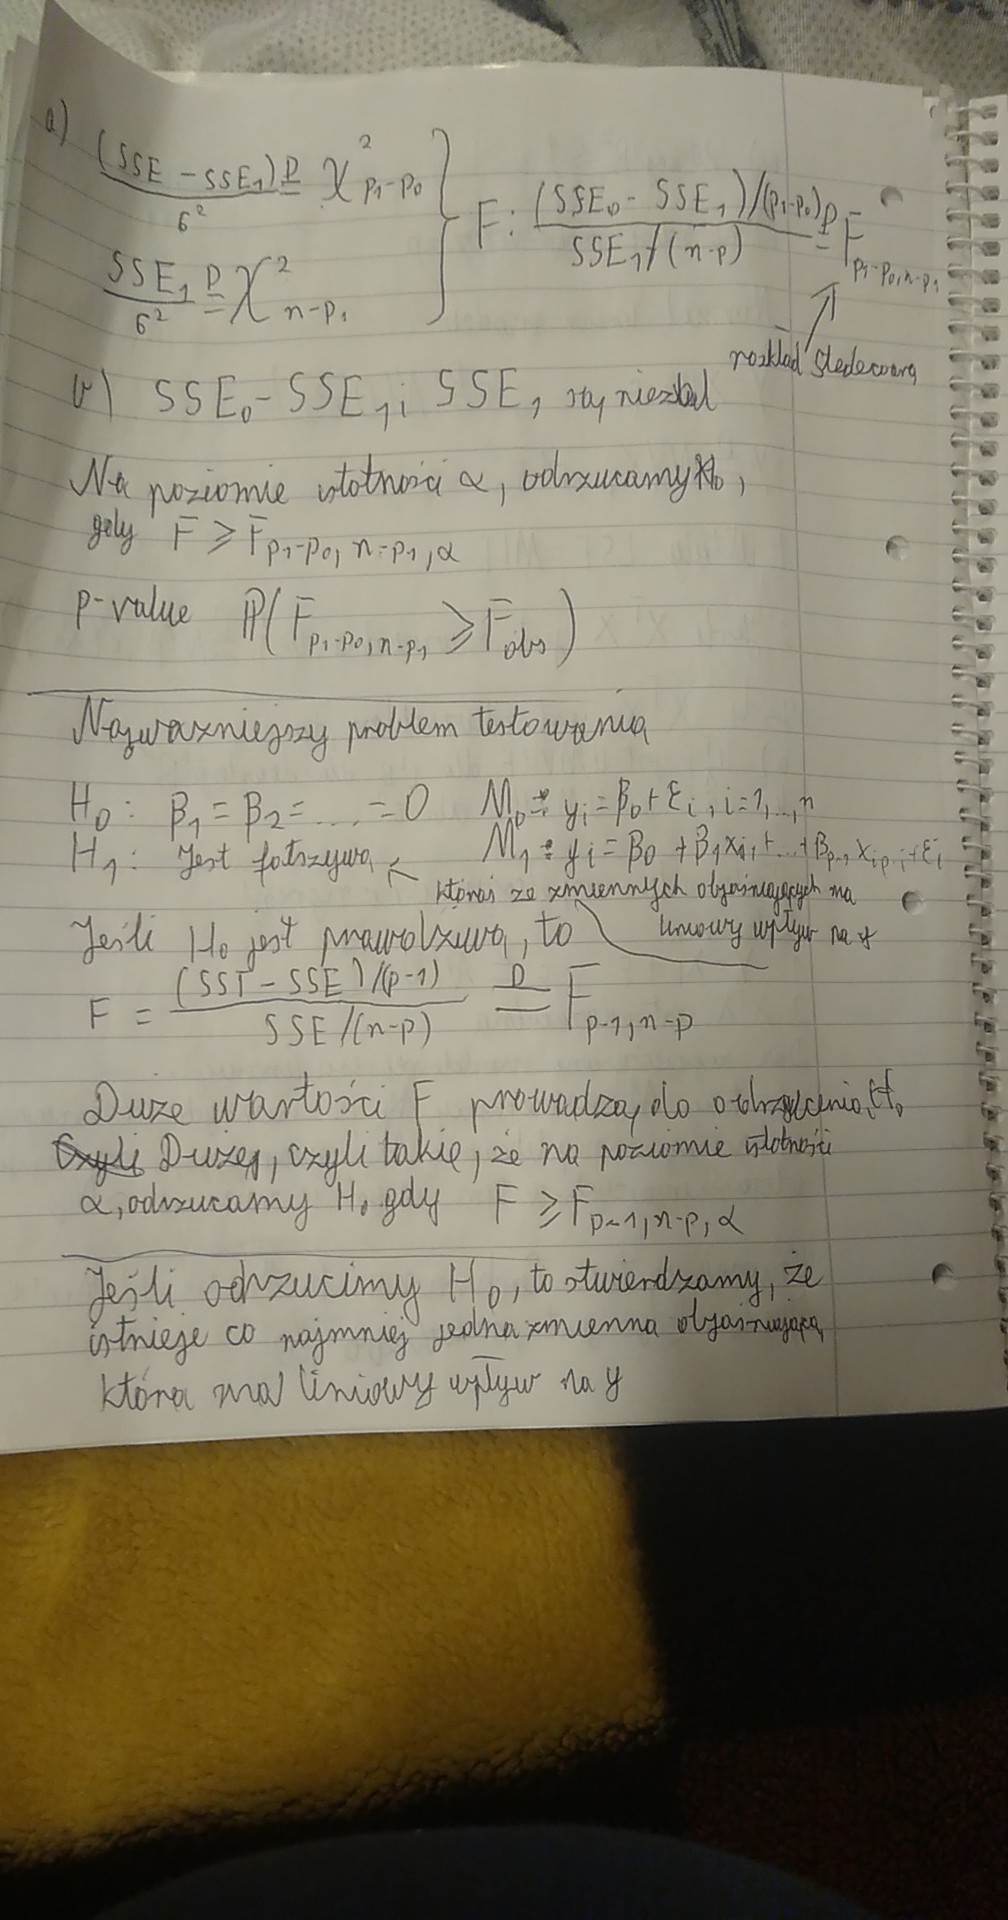 a) (SSE - SSE₁)/σ² D= χ²_{p₁-p₀}
SSE₁/σ² D= χ²_{n-p₁}
} F: ((SSE₀ - SSE₁)/(p₁-p₀))/(SSE₁/(n-p)) D= F_{p₁-p₀, n-p₁}
rozkład Snedecora
b) SSE₀ - SSE₁ i SSE₁ są niezal
Na poziomie istotności α, odrzucamy H₀,
gdy F ≥ F_{p₁-p₀, n-p₁, α}
p-value ℙ(F_{p₁-p₀, n-p₁} ≥ F_{obs})
Najważniejszy problem testowania
H₀: β₁ = β₂ = ... = 0 M₀: yᵢ = β₀ + εᵢ, i = 1, ..., n
H₁: Jest fałszywa M₁: yᵢ = β₀ + β₁xᵢ,₁ + ... + β_{p-1} x_{ip-1} + εᵢ
któraś ze zmiennych objaśniających ma
liniowy wpływ na y
Jeśli H₀ jest prawdziwa, to
F = ((SST - SSE)/(p-1))/(SSE/(n-p)) D= F_{p-1, n-p}
Duże wartości F prowadzą do odrzucenia H₀
Czyli Duże, czyli takie, że na poziomie istotności
α, odrzucamy H₀ gdy F ≥ F_{p-1, n-p, α}
Jeśli odrzucimy H₀, to stwierdzamy, że
istnieje co najmniej jedna zmienna objaśniająca,
która ma liniowy wpływ na y